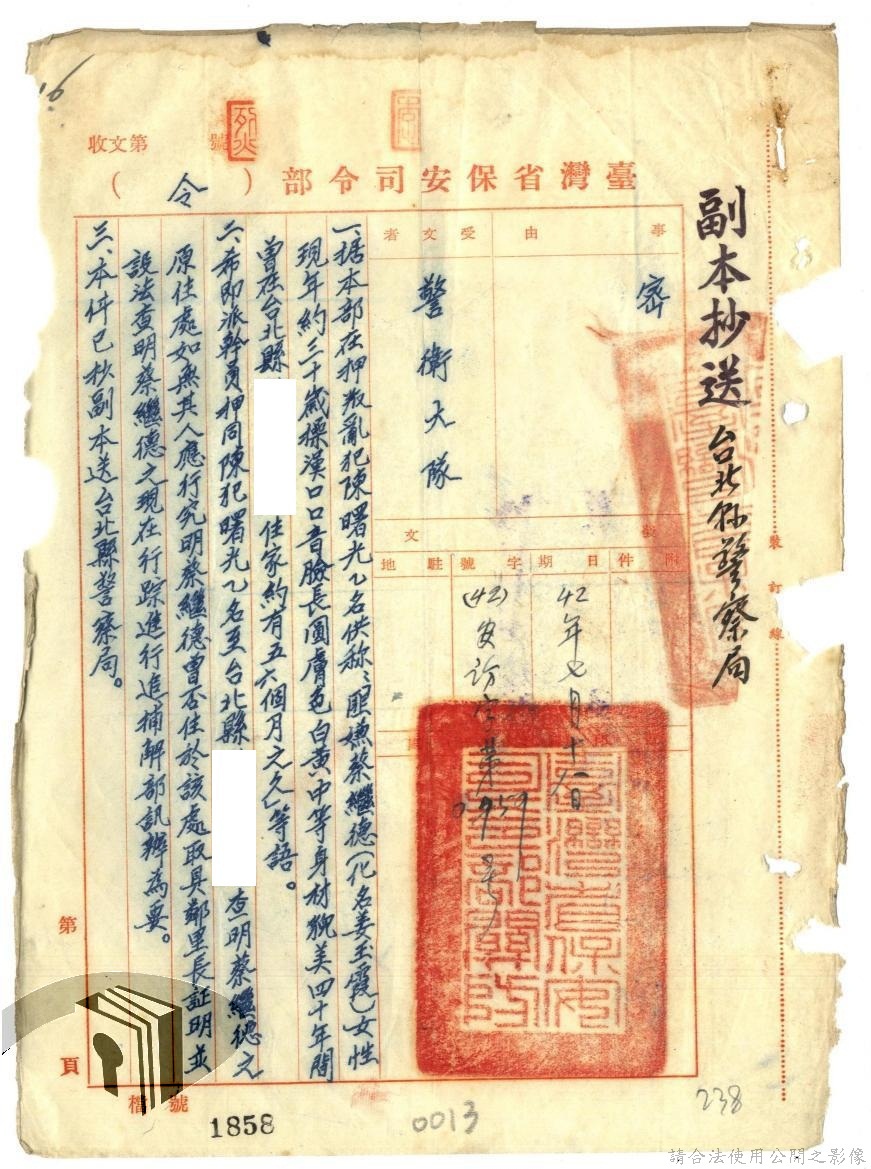 副本抄送 台北縣警察局
收文第 號
臺灣省保安司令部（令）
事由
密
受文者
警衛大隊
附件
日期
42年七月十六日
字號
(42)安訪字第0959號
駐地
一、据本部在押叛亂犯陳曙光乙名供称：匪嫌蔡繼德（化名姜玉霞）女性
現年約三十歲操漢口口音臉長圓膚色白黃中等身材貌美四十年間
曾在台北縣 住家約有五六個月之久」等語。
二、希即派幹員押同陳犯曙光乙名至台北縣 查明蔡繼德之
原住處如無其人應行究明蔡繼德曾否住於該處取具鄰里長証明並
設法查明蔡繼德之現在行踪進行追捕解部訊辦為要。
三、本件已抄副本送台北縣警察局。
裝訂線
第 頁
檔號
1858
0013
238
16
臺灣省保安司令部關防
請合法使用公開之影像